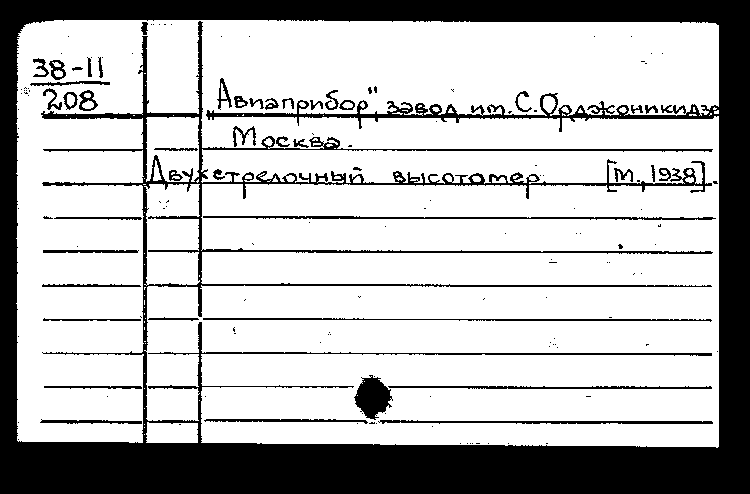 38-11
208
„Авиаприбор", завод им. С. Орджоникидзе
Москва.
Двухстрелочный высотомер. [М., 1938].